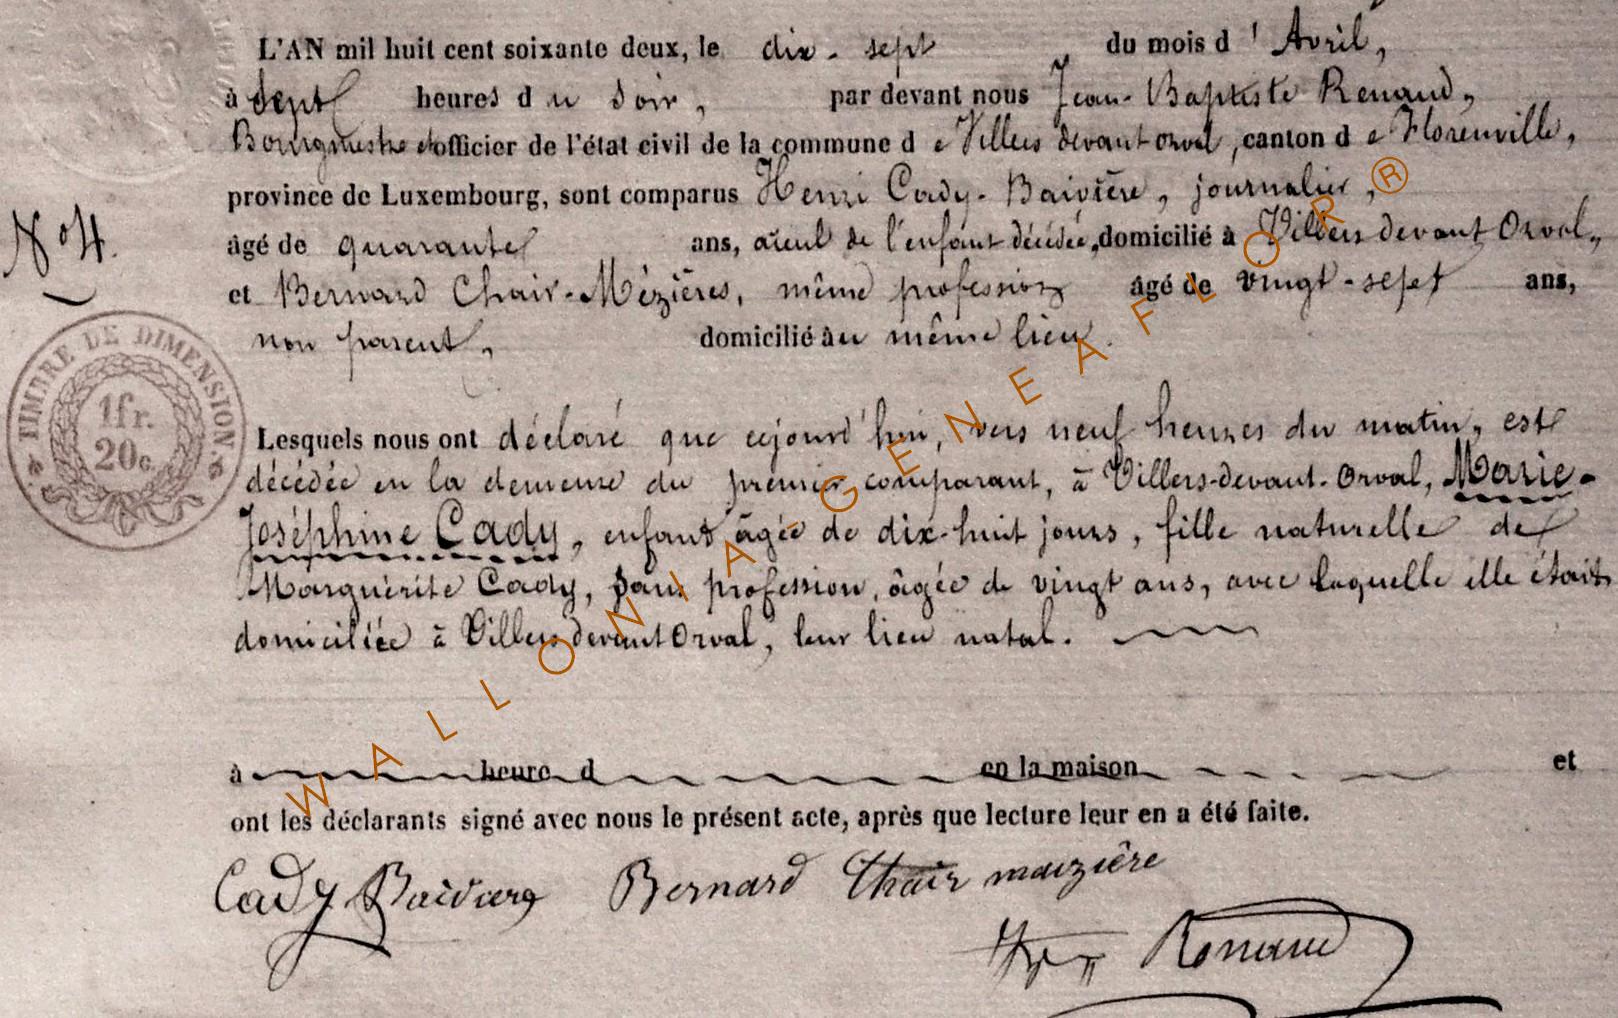 L'AN mil huit cent soixante deux, le dix-sept du mois d'Avril,
à Sept heures du Soir, par devant nous Jean-Baptiste Renaud,
Bourgmestre et officier de l'état civil de la commune de Villers devant orval, canton de Florenville,
province de Luxembourg, sont comparus Henri Cady-Baivière, journalier,
N° 4.
âgé de quarante ans, aïeul de l'enfant décédée, domicilié à Villers devant Orval,
et Bernard Chair-Mézières, même profession âgé de vingt-sept ans,
non parent, domicilié au même lieu.
TIMBRE DE DIMENSION
1fr.
20c.
Lesquels nous ont déclaré que cejourd'hui, vers neuf heures du matin, est
décédée en la demeure du premier comparant, à Villers-devant-Orval, Marie-
Joséphine Cady, enfant âgée de dix-huit jours, fille naturelle de
Marguérite Cady, sans profession, âgée de vingt ans, avec laquelle elle était
domiciliée à Villers devant Orval, leur lieu natal.
à heure d en la maison et
ont les déclarants signé avec nous le présent acte, après que lecture leur en a été faite.
Cady Baiviere Bernard Chair maizière
Renaud
WALLONIA-GENEAFLOR®